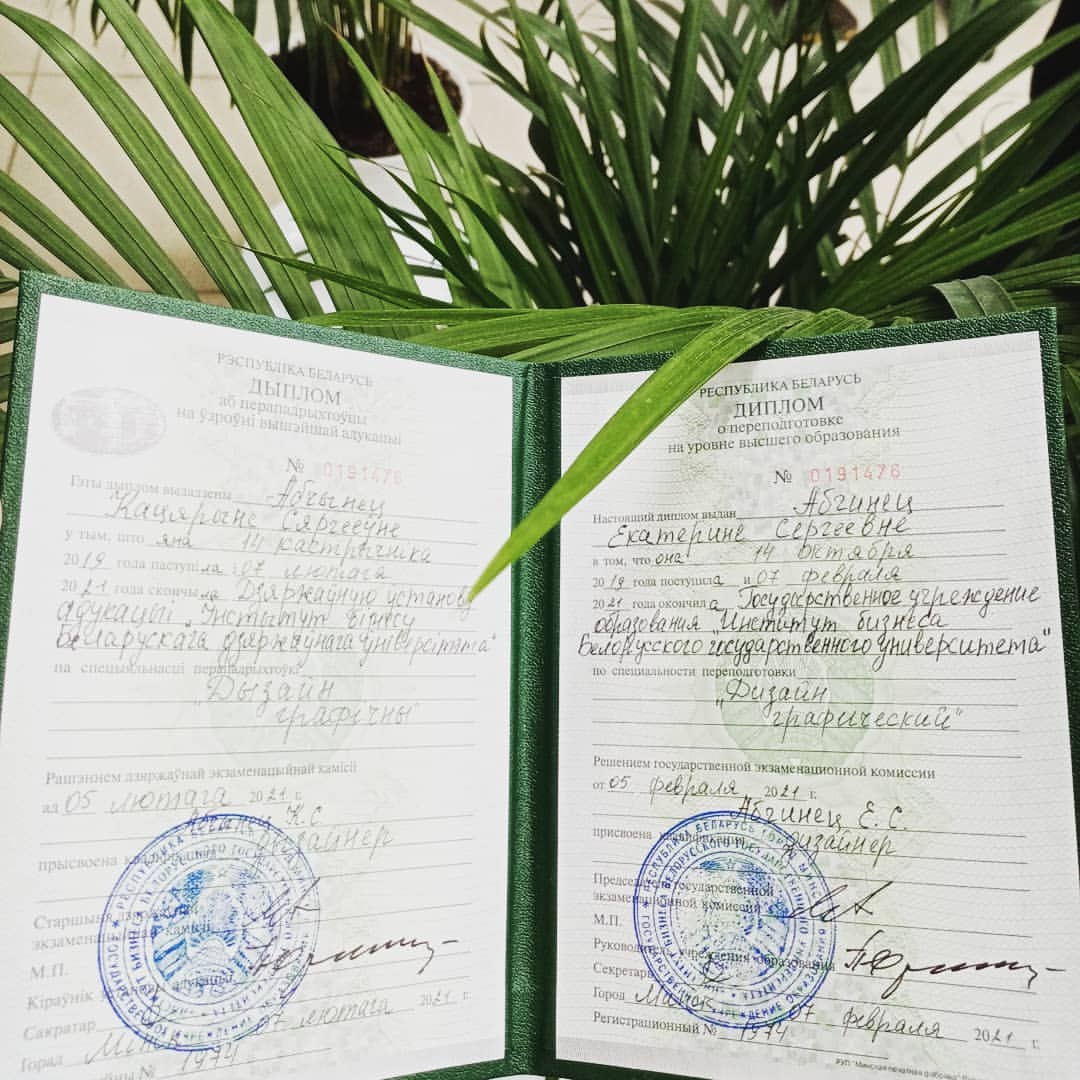 РЭСПУБЛІКА БЕЛАРУСЬ
ДЫПЛОМ
аб перападрыхтоўцы
на ўзроўні вышэйшай адукацыі
№ 0191476
Гэты дыплом выдадзены Абчынец
Кацярыне Сяргееўне
у тым, што яна 14 кастрычніка
2019 года паступіла і 07 лютага
2021 года скончыла Дзяржаўную установу
адукацыі „Інстытут бізнесу
Беларускага дзяржаўнага ўніверсітэта“
па спецыяльнасці перападрыхтоўкі
„Дызайн
графічны“
Рашэннем дзяржаўнай экзаменацыйнай камісіі
ад 05 лютага 2021 г.
К.С.
прысвоена дызайнер
Старшыня дзяржаўнай
экзаменацыйнай камісіі
М.П.
Кіраўнік адукацыі
Сакратар
07 лютага 2021 г.
Горад Мінск
№ 1974
РЕСПУБЛИКА БЕЛАРУСЬ
ДИПЛОМ
о переподготовке
на уровне высшего образования
№ 0191476
Настоящий диплом выдан Абчинец
Екатерине Сергеевне
в том, что она 14 октября
2019 года поступила и 07 февраля
2021 года окончила Государственное учреждение
образования "Институт бизнеса
Белорусского государственного университета"
по специальности переподготовки
"Дизайн
графический"
Решением государственной экзаменационной комиссии
от 05 февраля 2021 г.
Абчинец Е. С.
присвоена квалификация дизайнер
Председатель государственной
экзаменационной комиссии
М.П.
Руководитель учреждения образования
Секретарь
Город Минск 07 февраля 2021 г.
Регистрационный № 1974
РУП "Минская печатная фабрика"